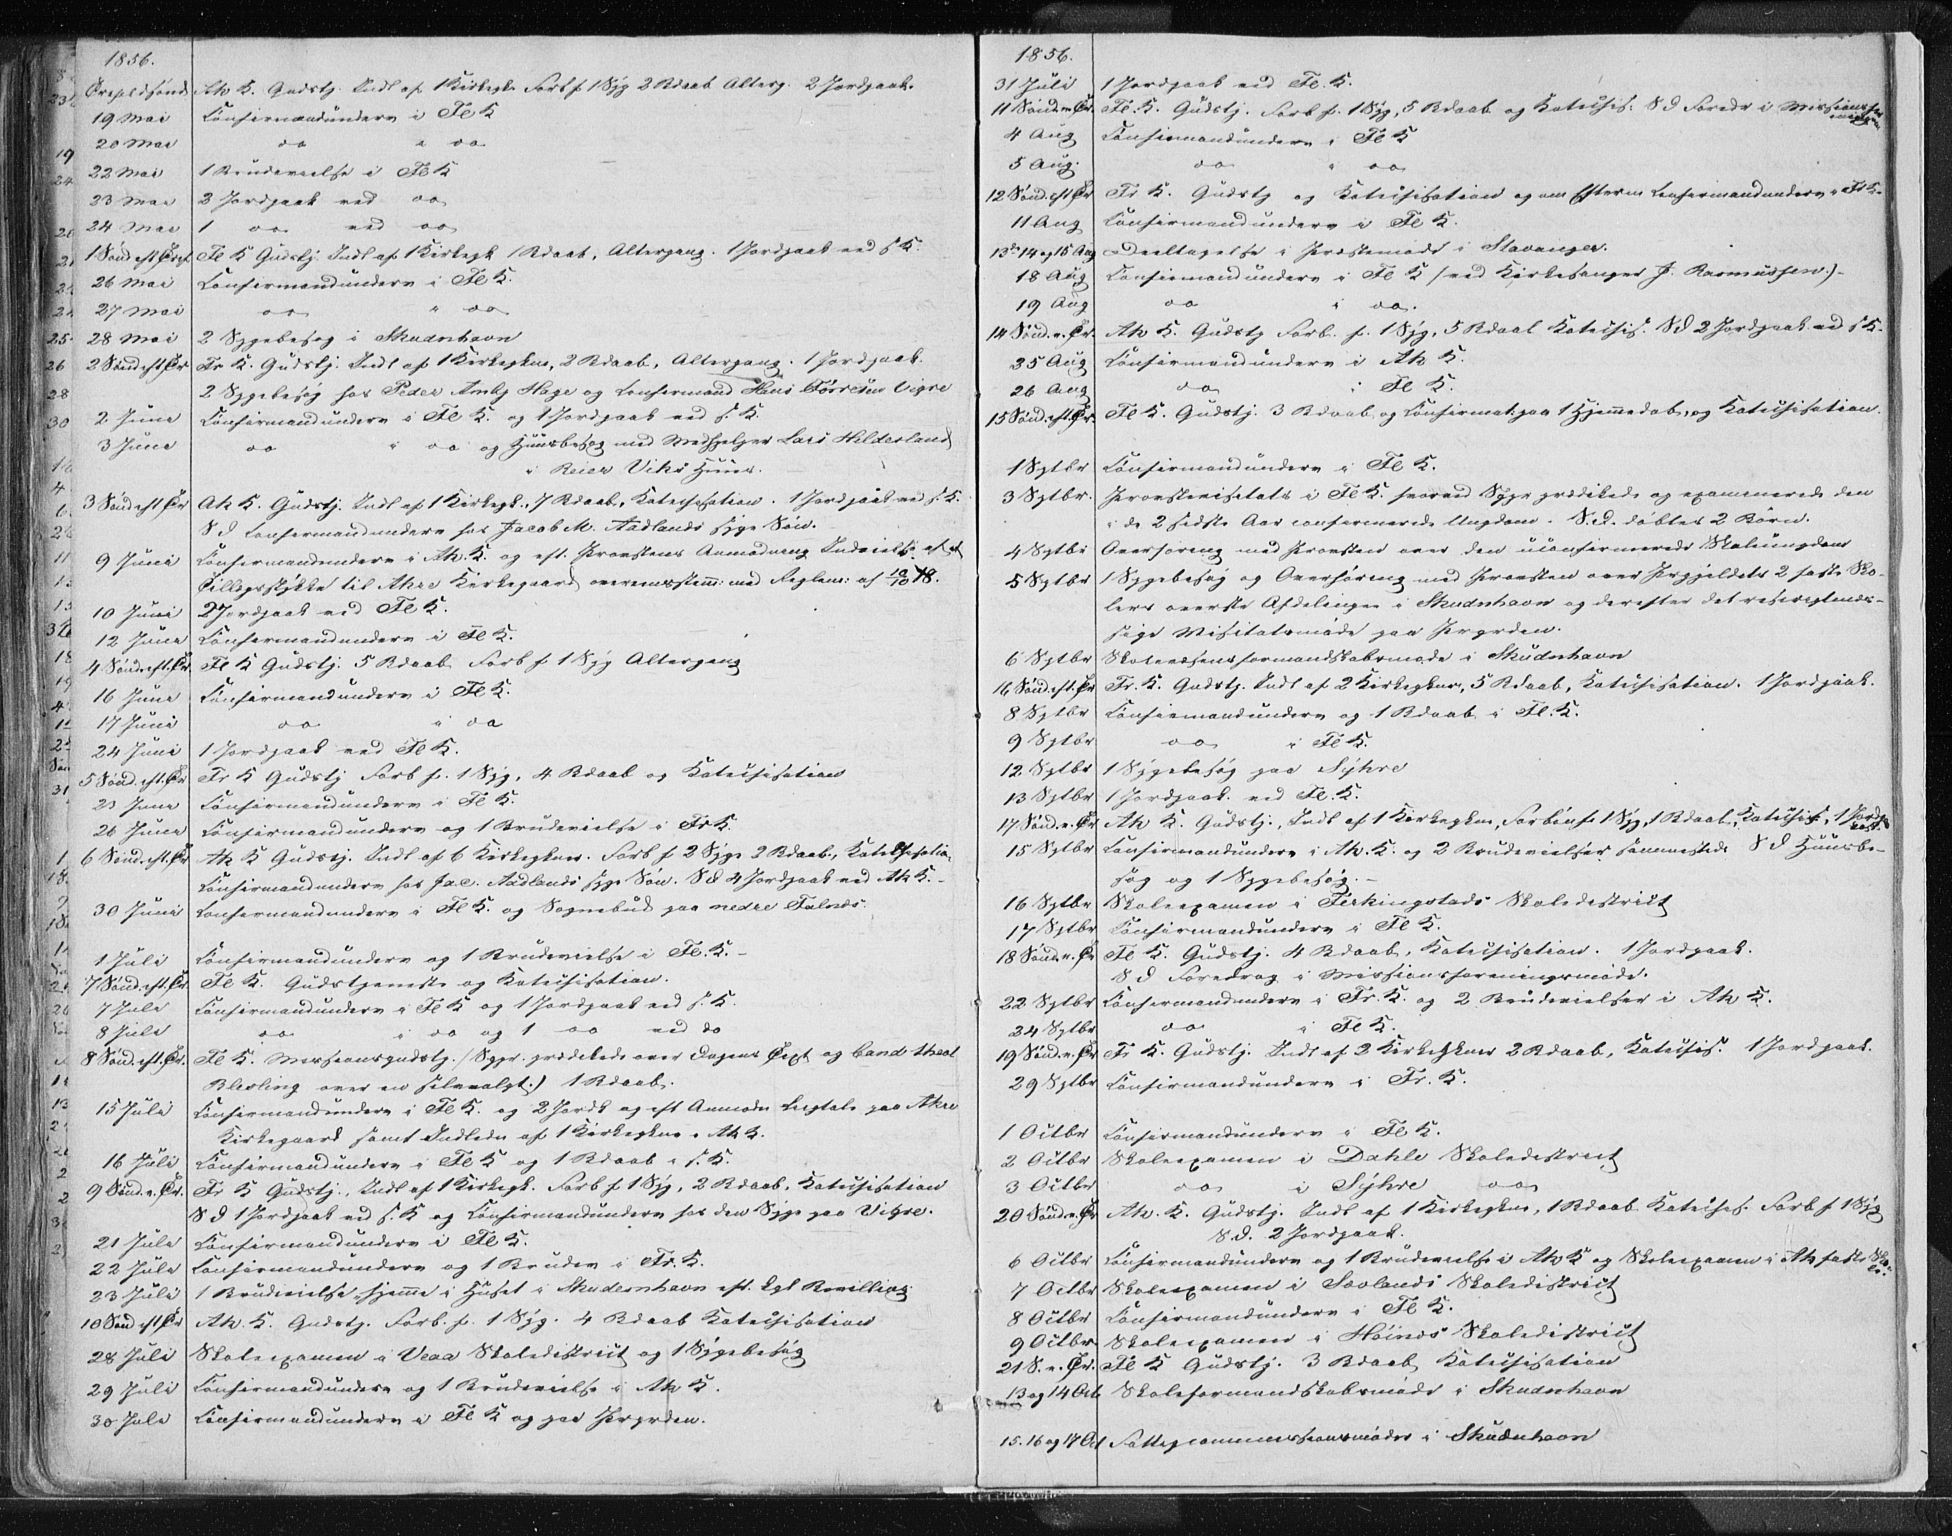 1856.
Trefoldsønd Ak K. Gudstj. Indl af 1 Kirkegk Forb f 1 Syg 2 Bdaab Alterg. 2 Jordpaak.
19 Mai Confirmandunderv i Fl K
20 Mai do i do
22 Mai 1 Brudevielse i Fl K
23 Mai 2 Jordpaak ved do
24 Mai 1 do ved do
1 Sønd eft Tref Fl K Gudstj. Indl af 1 Kirkegk 1 Bdaab, Altergang. 1 Jordpaak ved s. K.
26 Mai Confirmandunderv i Fl K.
27 Mai do i do
28 Mai 2 Sygebesøg i Skudnhavn
2 Sønd eft Tr Fr K. Gudstj. Indl af 1 Kirkegkne, 2 Bdaab, Altergang. 1 Jordpaak.
2 Sygebesøg hos Peder Hage og Confirmand Hans Tørresen Vigre
2 Juni Confirmandunderv i Fl K. og 1 Jordpaak ved s. K.
3 Juni do i do og Huusbesøg med Medhjelper Lars Hilderland
i Reier Viks Huus.
3 Sønd eft Tr Ak K. Gudstj. Indl af 1 Kirkegk., 7 Bdaab, Katechisation. 1 Jordpaak ved s. K.
S D Confirmandunderv hos Jacob M. Aadlands syge Søn.
9 Juni Confirmandunderv i Ak. K. og eft. Provstens Anmodning Indvielse af et
Tillægsstykke til Akre Kirkegaard overensstem: med Reglem: af
10 Juni 2 Jordpaak ved Fl K.
12 Juni Confirmandunderv i Fl K.
4 Sønd. eft. Tr Fl K Gudstj. 5 Bdaab Forb f 1 Syg Altergang
16 Juni Confirmandunderv i Fl K.
17 Juni do i do
24 Juni 1 Jordpaak ved Fl K.
5 Sønd. eft. Tr Fr K Gudstj Forb f. 1 Syg, 4 Bdaab og Katechisation
23 Juni Confirmandunderv i Fl K.
26 Juni Confirmandunderv og 1 Brudevielse i Fr K.
6 Sønd. eft. Tr Ak K Gudstj. Indl af 6 Kirkegkner. Forb f 2 Syge 2 Bdaab, Katechisation
Confirmandunderv hos Jac. Aadlands syge Søn. S D 4 Jordpaak ved Ak K.
30 Juni Confirmandunderv i Fl K. og Sognebud paa nedre Falnæs.
1 Juli Confirmandunderv og 1 Brudevielse i Fl. K.
7 Sønd. eft. Tr Fl K. Gudstjeneste og Katechisation.
7 Juli Confirmandunderv i Fl K og 1 Jordpaak ved s. K.
8 Juli do i do og 1 do ved do
8 Sønd. eft. Tr. Fl K. Missionsgudstj. (Sgpr. prædikede over Dagens Text og Cand. theol
over en selvvalgt.) 1 Bdaab.
15 Juli Confirmandunderv i Fl K. og 2 Jordk og eft Anmodn Liigtale paa Akre
Kirkegaard samt Indledn af 1 Kirkegkne i Ak K.
16 Juli Confirmandunderv i Fl K og 1 Bdaab i s. K.
9 Sønd. e. Tr. Fr K Gudstj., Indl af 1 Kirkegk. Forb f 1 Syg, 2 Bdaab, Katechisation
S D 1 Jordpaak ved s. K og Confirmandunderv hos den Syge paa Vigre.
21 Juli Confirmandunderv i Fl K.
22 Juli Confirmandunderv og 1 Brudev i Fr. K.
23 Juli 1 Brudevielse hjemme i Huset i Skudesnhavn eft. Kgl Bevilling
10 Sønd eft Tr Ak. K. Gudstj. Forb. f. 1 Syg. 4 Bdaab Katechisation
28 Juli Skoleexamen i Veaa Skoledistrict og 1 Sygebesøg
29 Juli Confirmandunderv og 1 Brudevielse i Ak K.
30 Juli Confirmandunderv i Fl K og paa Prgrden.
1856.
31 Juli 1 Jordpaak ved Fl. K.
11 Sønd. e. Tr. Fl. K. Gudstj. Forb f. 1 Syg, 5 Bdaab og Katechis: S D Foredr i Missionsfor
4 Aug Confirmandunderv i Fl K
5 Aug. do i do
12 Sønd. eft Tr Fr K. Gudstj og Katechisation og om Efterm Confirmandunderv i Fl K.
11 Aug Confirmandunderv i Fl K.
13de 14 og 15 Aug Deeltagelse i Præstemøde i Stavanger.
18 Aug Confirmandunderv i Fl K (ved Kirkesanger J. Rasmussen.)
19 Aug do i do.
14 Sønd. e. Tr. Ak K. Gudstj Forb. f. 1 Syg, 5 Bdaab Katechis. S D 2 Jordpaak ved s K.
25 Aug Confirmandunderv i Ak K.
26 Aug do i Fl K.
15 Sønd. eft. Tr. Fl K. Gudstj. 3 Bdaab og Confirmat. paa 1 Hjemmedøbt, og Katechisation.
1 Sptbr Confirmandunderv i Fl K.
3 Sptbr. Provstevisitats i Fl K. hvorved Sgpr prædikede og examinerede den
i de 2 sidste Aar confirmerede Ungdom. S. D. døbtes 2 Børn.
4 Sptbr Overhøring med Provsten over den uconfirmerede Skoleungdom
5 Sptbr 1 Sygebesøg og Overhøring med Provsten over Prgjeldets 2 faste Sko-
lers øverste Afdelinger i Skudnhavn og derefter det
sige Visitatsmøde paa Prgrden.
6 Sptbr Skolevæsensformandskabsmøde i Skudnhavn
16 Sønd. eft. Tr Fr. K. Gudstj. Indl af 2 Kirkegkner, 5 Bdaab, Katechisation. 1 Jordpaak.
8 Sptbr Confirmandunderv og 1 Bdaab i Fl. K.
9 Sptbr do i Fl K.
12 Sptbr 1 Sygebesøg paa Syhre
13 Sptbr 1 Jordpaak. ved Fl. K.
17 Sønd. e. Tr Ak K. Gudstj., Indl af 1 Kirkegkne, Forbøn f. 1 Syg, 1 Bdaab, Katechis., 1 Jordpaak.
15 Sptbr Confirmandunderv i Ak. K. og 2 Brudevielser sammesteds S D Huusbe-
søg og 1 Sygebesøg.
16 Sptbr Skoleexamen i Ferkingstads Skoledistrict
17 Sptbr Confirmandunderv i Fl K.
18 Sønd. e. Tr Fl K. Gudstj. 4 Bdaab, Katechisation. 1 Jordpaak.
S D Foredrag i Missionsforeningsmøde.
22 Sptbr Confirmandunderv i Fr. K. og 2 Brudevielser i Ak K.
24 Sptbr do i Fl K.
19 Sønd. e. Tr Fr K. Gudstj. Indl af 2 Kirkegkner 2 Bdaab, Katechis. 1 Jordpaak.
29 Sptbr Confirmandunderv i Fr. K.
1 Octbr Confirmandunderv i Fl K.
2 Octbr Skoleexamen i Dahle Skoledistrict
3 Octbr do i Syhre do
20 Sønd. e. Tr Ak. K. Gudstj. Indl af 1 Kirkegkne, 1 Bdaab Katechis. Forb f 1 Syg
S. D. 2 Jordpaak.
6 Octbr Confirmandunderv og 1 Brudevielse i Ak K og Skoleexamen i Ak faste Sko-
le.
7 Octbr Skoleexamen i Sævlands Skoledistrict
8 Octbr Confirmandunderv i Fl K.
9 Octbr Skoleexamen i Høinæs Skoledistrict
21 S. e. Tr. Fl K Gudstj. 3 Bdaab Katechisation
13 og 14 Oct Skoleformandskabsmøde i Skudnhavn
15. 16 og 17 Oct Fattigcommissionsmøder i Skudnhavn